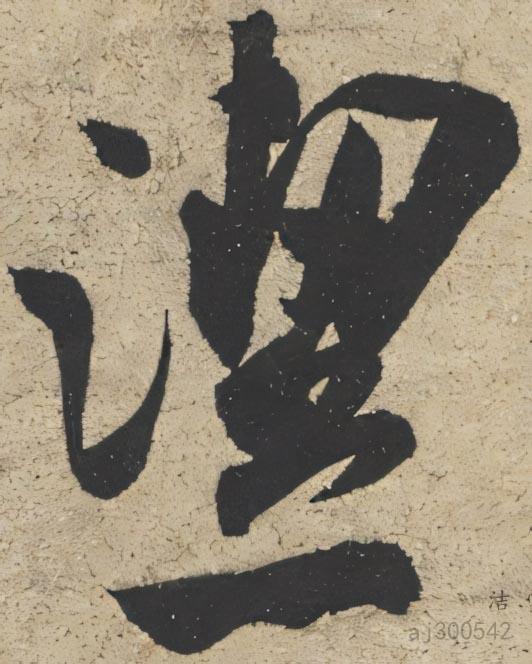 潔
洁
aj300542